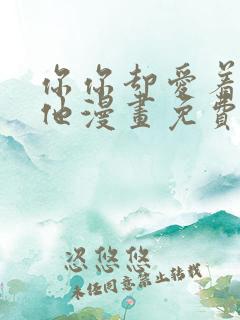 你你却爱着
他漫畫免費
忽悠悠
未经同意禁止转载